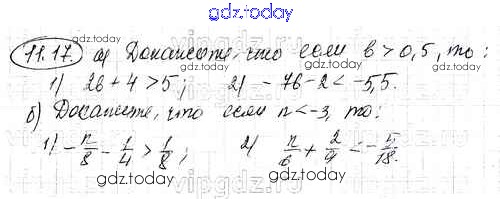 gdz.today
11.17. а) Докажите, что если b > 0,5, то:
1) 2b + 4 > 5; 2) - 7b - 2 < -5,5.
gdz.today
б) Докажите, что если n < -3, то:
1) - n/8 - 1/4 > 1/8; 2) n/6 + 2/9 < - 5/18.
gdz.today
gdz.today